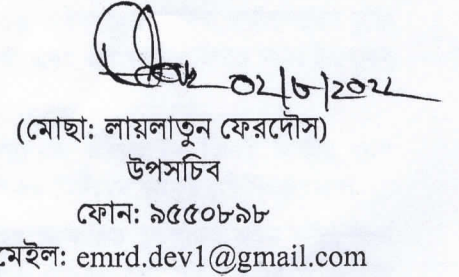 ০২/৮/২০২২
(মোছা: লায়লাতুন ফেরদৌস)
উপসচিব
ফোন: ৯৫৫০৮৯৮
মেইল: emrd.dev1@gmail.com